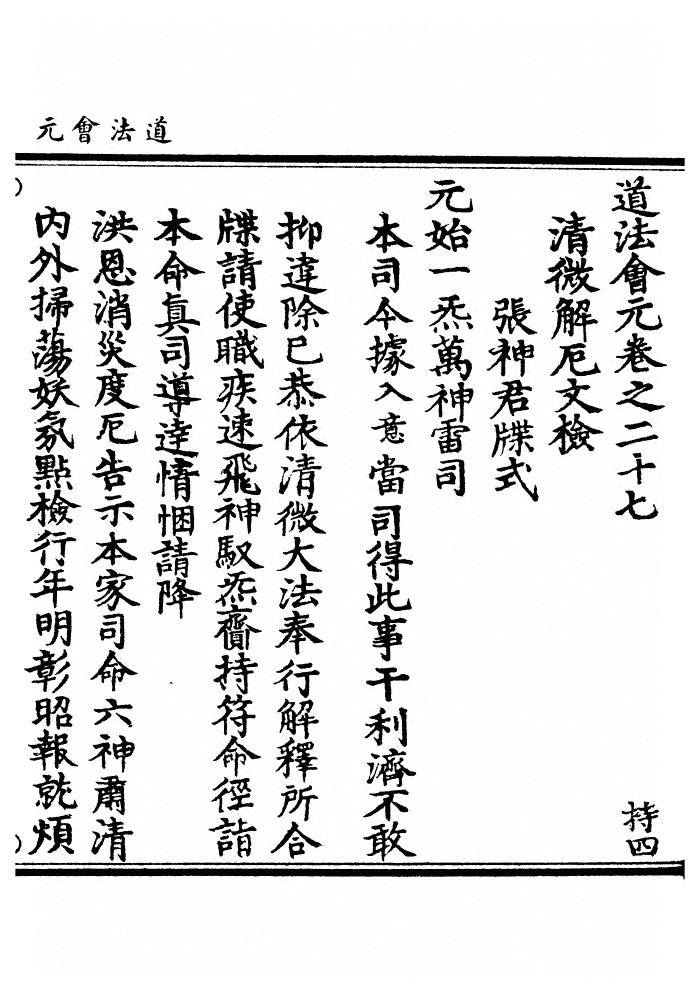 道法會元
道法會元卷之二十七
持四
清微解厄文檢
張神君牒式
元始一炁萬神雷司
本司今據入意當司得此事干利濟不敢
抑違除已恭依清微大法奉行解釋所合
牒請使職疾速飛神馭炁齎持符命徑詣
本命眞司導達情悃請降
洪恩消災度厄告示本家司命六神肅清
内外掃蕩妖氛點檢行年明彰昭報就煩